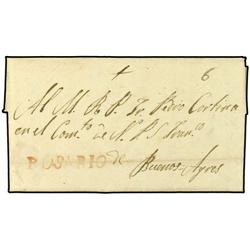 + 6
Al M. R. P. Fr. Pedro Cortina
en el Comto de N. P. S. Franco
ROSARIO de
Buenos Ayres